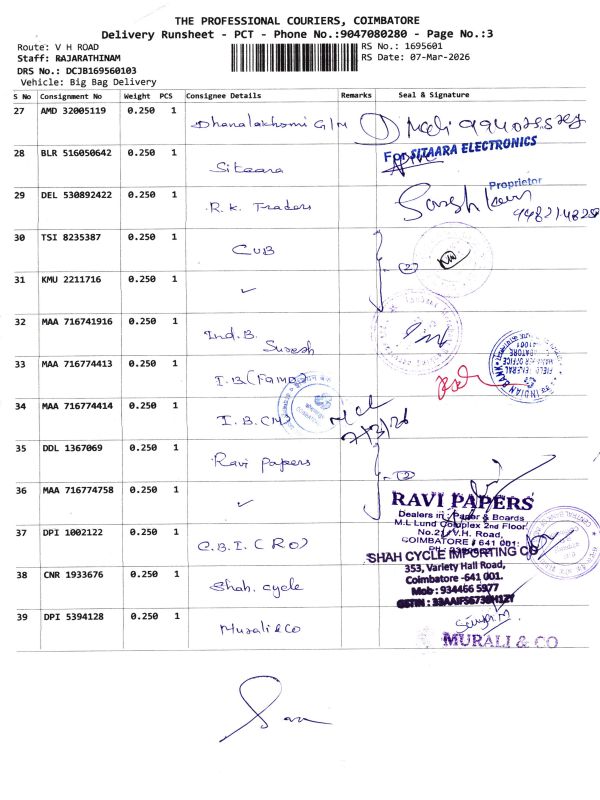 THE PROFESSIONAL COURIERS, COIMBATORE
Delivery Runsheet - PCT - Phone No.:9047080280 - Page No.:3
Route: V H ROAD
RS No.: 1695601
Staff: RAJARATHINAM
RS Date: 07-Mar-2026
DRS No.: DCJB169560103
Vehicle: Big Bag Delivery
S No Consignment No Weight PCS Consignee Details Remarks Seal & Signature
27 AMD 32005119 0.250 1 Dhanalakhomi G/M
28 BLR 516050642 0.250 1 Sitaara For SITAARA ELECTRONICS
Proprietor
29 DEL 530892422 0.250 1 R.K. Traders
30 TSI 8235387 0.250 1 CUB (2)
31 KMU 2211716 0.250 1 ✓
32 MAA 716741916 0.250 1 Ind.B. Suresh
33 MAA 716774413 0.250 1 I.B.(FGMO)
INDIAN BANK
34 MAA 716774414 0.250 1 I.B.(M) 7/3/26
35 DDL 1367069 0.250 1 Ravi Papers (2)
36 MAA 716774758 0.250 1 ✓
RAVI PAPERS
Dealers in : Paper & Boards
M.L Lund Complex 2nd Floor
No.21, V.H. Road,
COIMBATORE - 641 001.
37 DPI 1002122 0.250 1 C.B.I.(RO)
SHAH CYCLE IMPORTING CO
353, Variety Hall Road,
Coimbatore -641 001.
Mob : 934466 5977
38 CNR 1933676 0.250 1 Shah. cycle
39 DPI 5394128 0.250 1 Murali & Co
MURALI & CO